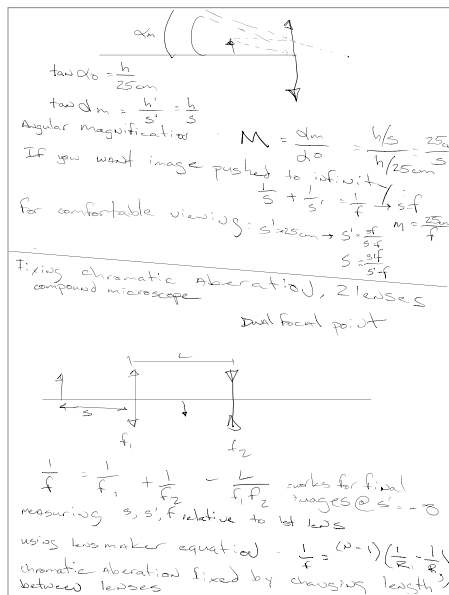 αm
tan α0 = h/25cm
tan αm = h'/s' = h/s
Angular magnification M = αm/α0 = (h/s)/(h/25cm) = 25cm/s
If you want image pushed to infinity
1/s + 1/s' = 1/f → s=f
M = 25cm/f
For comfortable viewing: s'=25cm → s' = sf/s-f
s = s'f/s'-f
Fixing chromatic Aberation, 2 lenses
compound microscope
Dual focal point
L
s
f1
f2
1/f = 1/f1 + 1/f2 - L/f1f2 works for final
images @ s' = -∞
measuring s, s', f relative to 1st lens
using lensmaker equation - 1/f = (n-1)(1/R1 - 1/R2)
chromatic Aberation fixed by changing length
between lenses